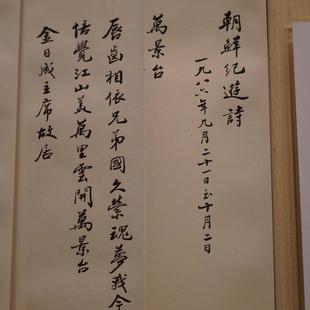 朝鮮紀遊詩
一九八六年九月二十一日至十月二日
萬景台
唇齒相依兄弟國久縈魂夢我今
倍覺江山美萬里雲開萬景台
金日成主席故居